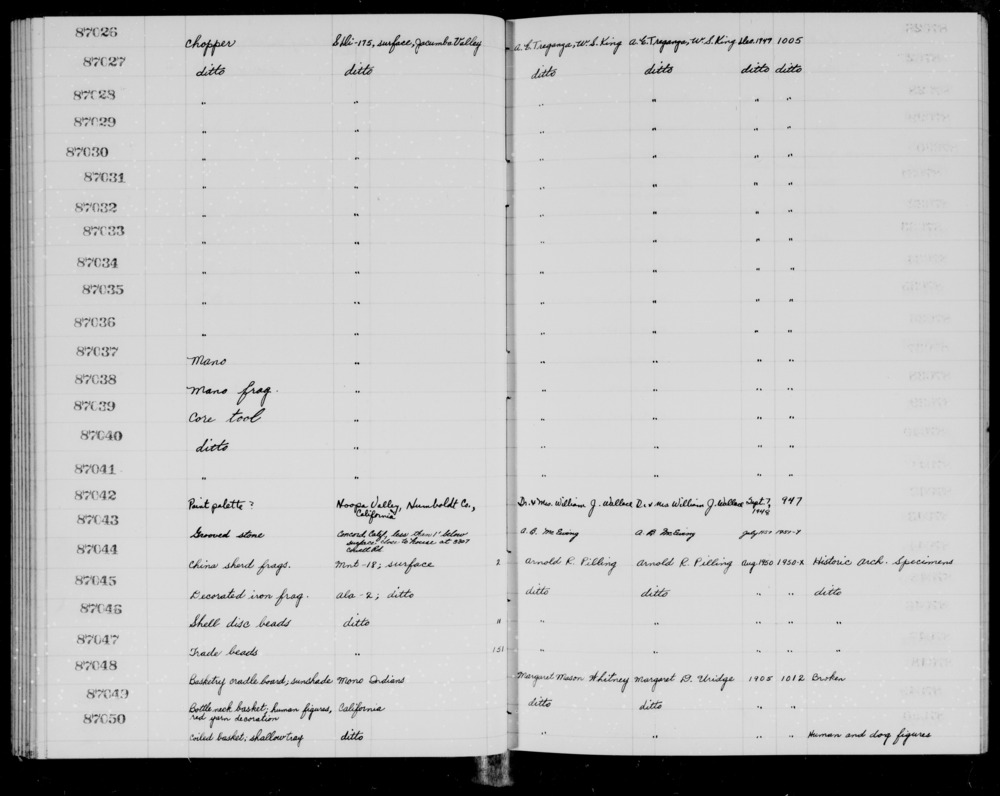 87026 Chopper SDi-175, surface, Jacumba Valley A.E. Treganza, W.S. King A.E. Treganza, W.S. King Dec. 1949 1005
87027 ditto ditto ditto ditto ditto ditto
87028 " " " " " "
87029 " " " " " "
87030 " " " " " "
87031 " " " " " "
87032 " " " " " "
87033 " " " " " "
87034 " " " " " "
87035 " " " " " "
87036 " " " " " "
87037 Mano " " " " "
87038 Mano frag. " " " " "
87039 Core tool " " " " "
87040 ditto " " " " "
87041 " " " " " "
87042 Paint palette? Hoopa Valley, Humboldt Co., Dr. & Mrs. William J. Wallace Dr. & Mrs William J. Wallace Sept. 7, 947
California 1948
87043 Grooved stone Concord Calif, less than 1' below A. B. McEwing A. B. McEwing July 1950
surface close to house at 3307
Rd
87044 China sherd frags. Mnt-18; surface 2 Arnold R. Pilling Arnold R. Pilling Aug 1950 1950-X Historic Arch. Specimens
87045 Decorated iron frag. Ala-2; ditto ditto ditto " " ditto
87046 Shell disc beads ditto 11 " " " " "
87047 Trade beads " 151 " " " " "
87048 Basketry cradle board, sunshade Mono Indians Margaret Mason Whitney Margaret D. Uridge 1905 1012 Broken
87049 Bottle neck basket; human figures, California ditto ditto " "
red yarn decoration
87050 Coiled basket; shallow tray ditto " " " " Human and dog figures